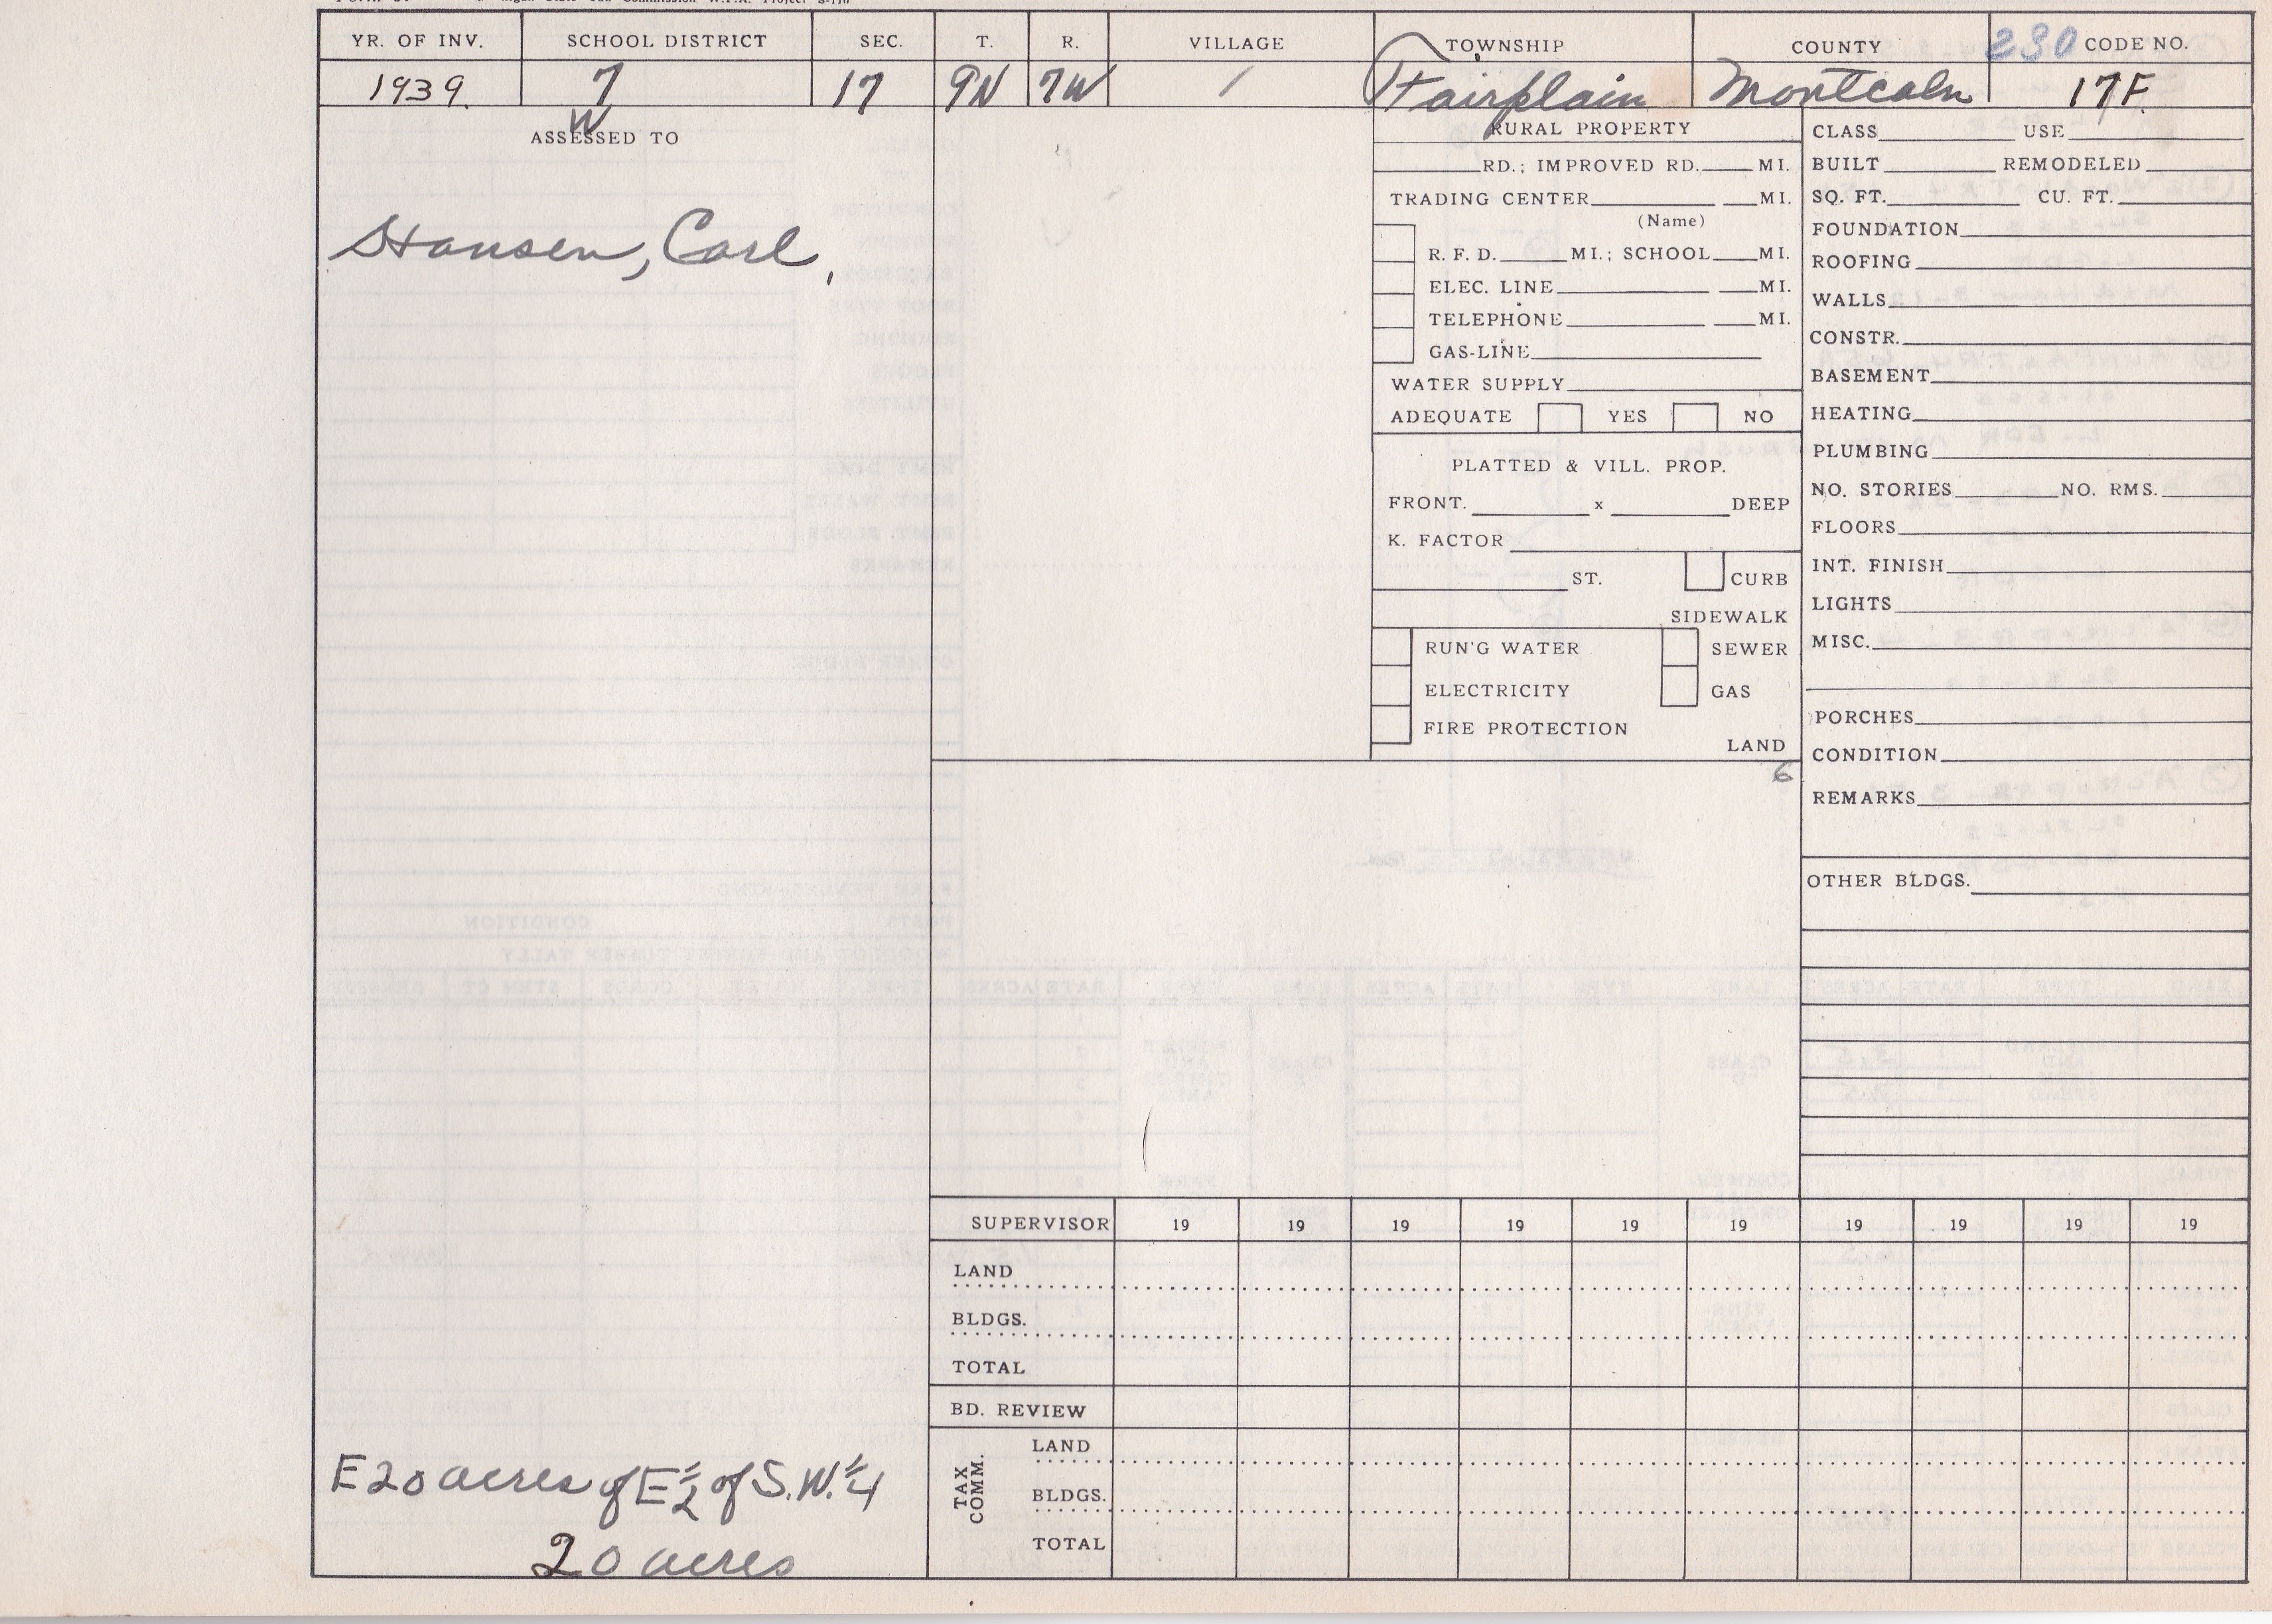 YR. OF INV. SCHOOL DISTRICT SEC. T. R. VILLAGE TOWNSHIP COUNTY 230 CODE NO.
1939 7 17 9N 7W / Fairplain Montcalm 17F
W
ASSESSED TO
Hansen, Carl,
E 20 acres of E 1/2 of S.W. 1/4
20 acres
RURAL PROPERTY
RD.; IMPROVED RD. MI.
TRADING CENTER MI.
(Name)
R. F. D. MI.; SCHOOL MI.
ELEC. LINE MI.
TELEPHONE MI.
GAS-LINE
WATER SUPPLY
ADEQUATE YES NO
PLATTED & VILL. PROP.
FRONT. x DEEP
K. FACTOR
ST. CURB
SIDEWALK
RUN'G WATER SEWER
ELECTRICITY GAS
FIRE PROTECTION
LAND
6
CLASS USE
BUILT REMODELED
SQ. FT. CU. FT.
FOUNDATION
ROOFING
WALLS
CONSTR.
BASEMENT
HEATING
PLUMBING
NO. STORIES NO. RMS.
FLOORS
INT. FINISH
LIGHTS
MISC.
PORCHES
CONDITION
REMARKS
OTHER BLDGS.
SUPERVISOR 19 19 19 19 19 19 19 19 19 19
LAND
BLDGS.
TOTAL
BD. REVIEW
TAX COMM.
LAND
BLDGS.
TOTAL